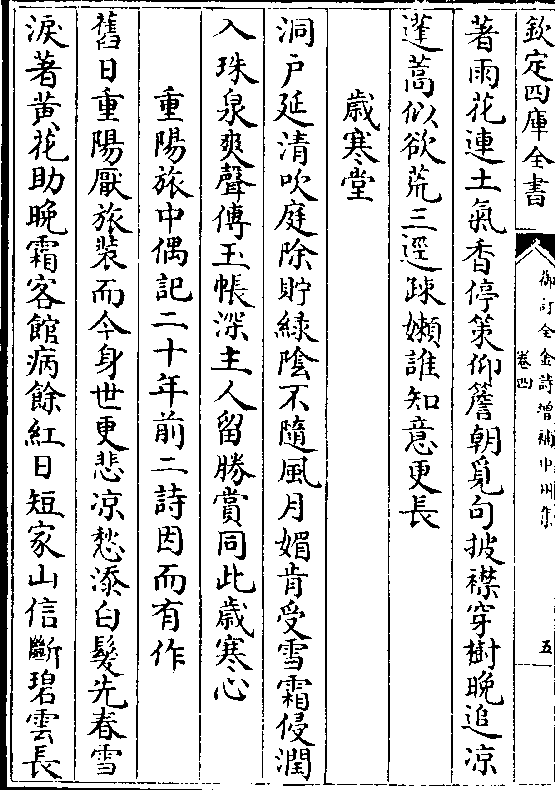 欽定四庫全書
御訂全金詩增補中州集
卷四
五
著雨花連土氣香停策仰簷朝覓句披襟穿樹晚追凉
蓬蒿似欲荒三逕踈嬾誰知意更長
歲寒堂
洞户延清吹庭除貯緑陰不隨風月媚肯受雪霜侵潤
入珠泉爽聲傳玉帳深主人留勝賞同此歲寒心
重陽旅中偶記二十年前二詩因而有作
舊日重陽厭旅裝而今身世更悲凉愁添白髮先春雪
淚著黄花助晚霜客館病餘紅日短家山信斷碧雲長